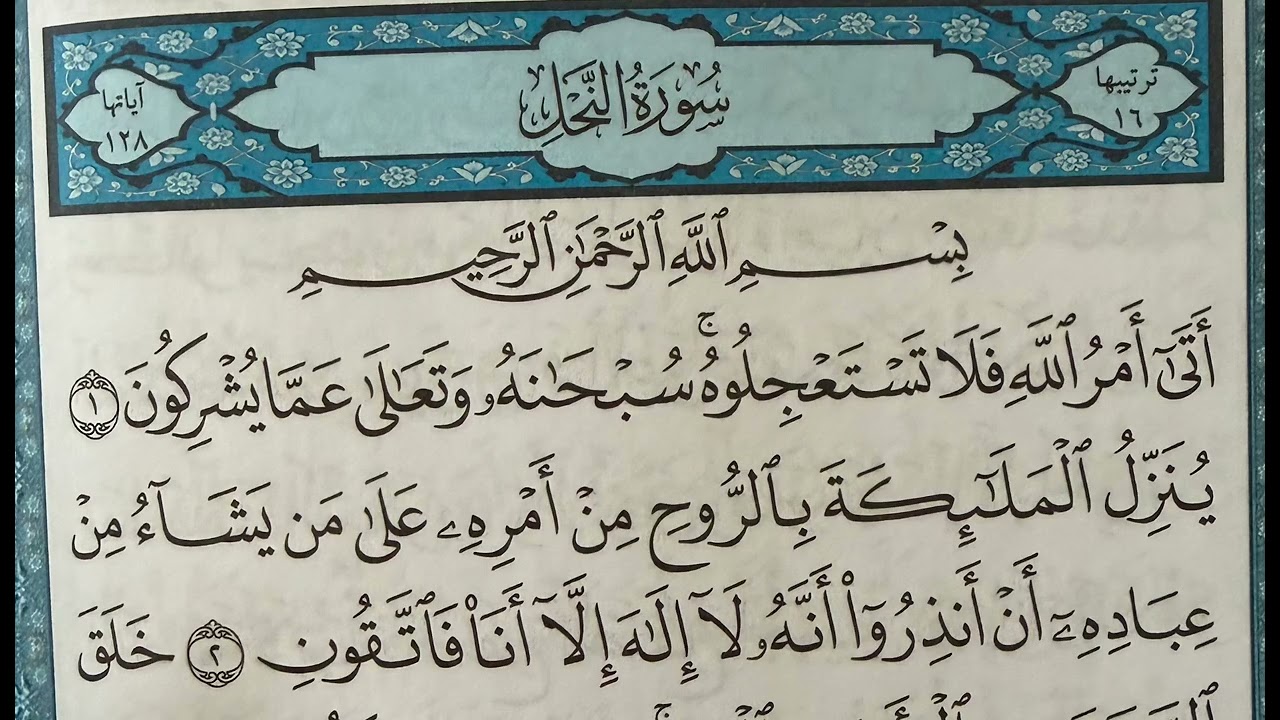 ترتيبها
١٦
سُورَةُ النَّحْلِ
آياتها
١٢٨
بِسْمِ ٱللَّهِ ٱلرَّحْمَٰنِ ٱلرَّحِيمِ
أَتَىٰٓ أَمْرُ ٱللَّهِ فَلَا تَسْتَعْجِلُوهُۚ سُبْحَٰنَهُۥ وَتَعَٰلَىٰ عَمَّا يُشْرِكُونَ ١
يُنَزِّلُ ٱلْمَلَٰٓئِكَةَ بِٱلرُّوحِ مِنْ أَمْرِهِۦ عَلَىٰ مَن يَشَآءُ مِنْ
عِبَادِهِۦٓ أَنْ أَنذِرُوٓا۟ أَنَّهُۥ لَآ إِلَٰهَ إِلَّآ أَنَا۠ فَٱتَّقُونِ ٢ خَلَقَ